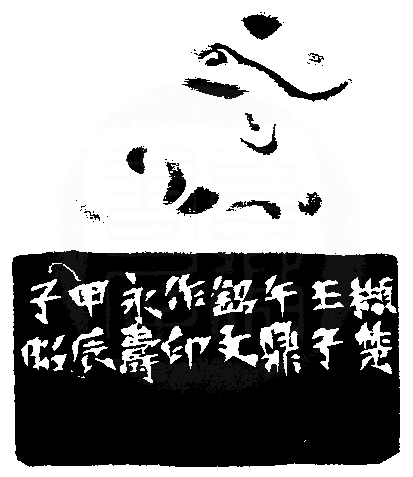 擷楚
王子
午鼎
銘文
作印
永壽
甲辰
子